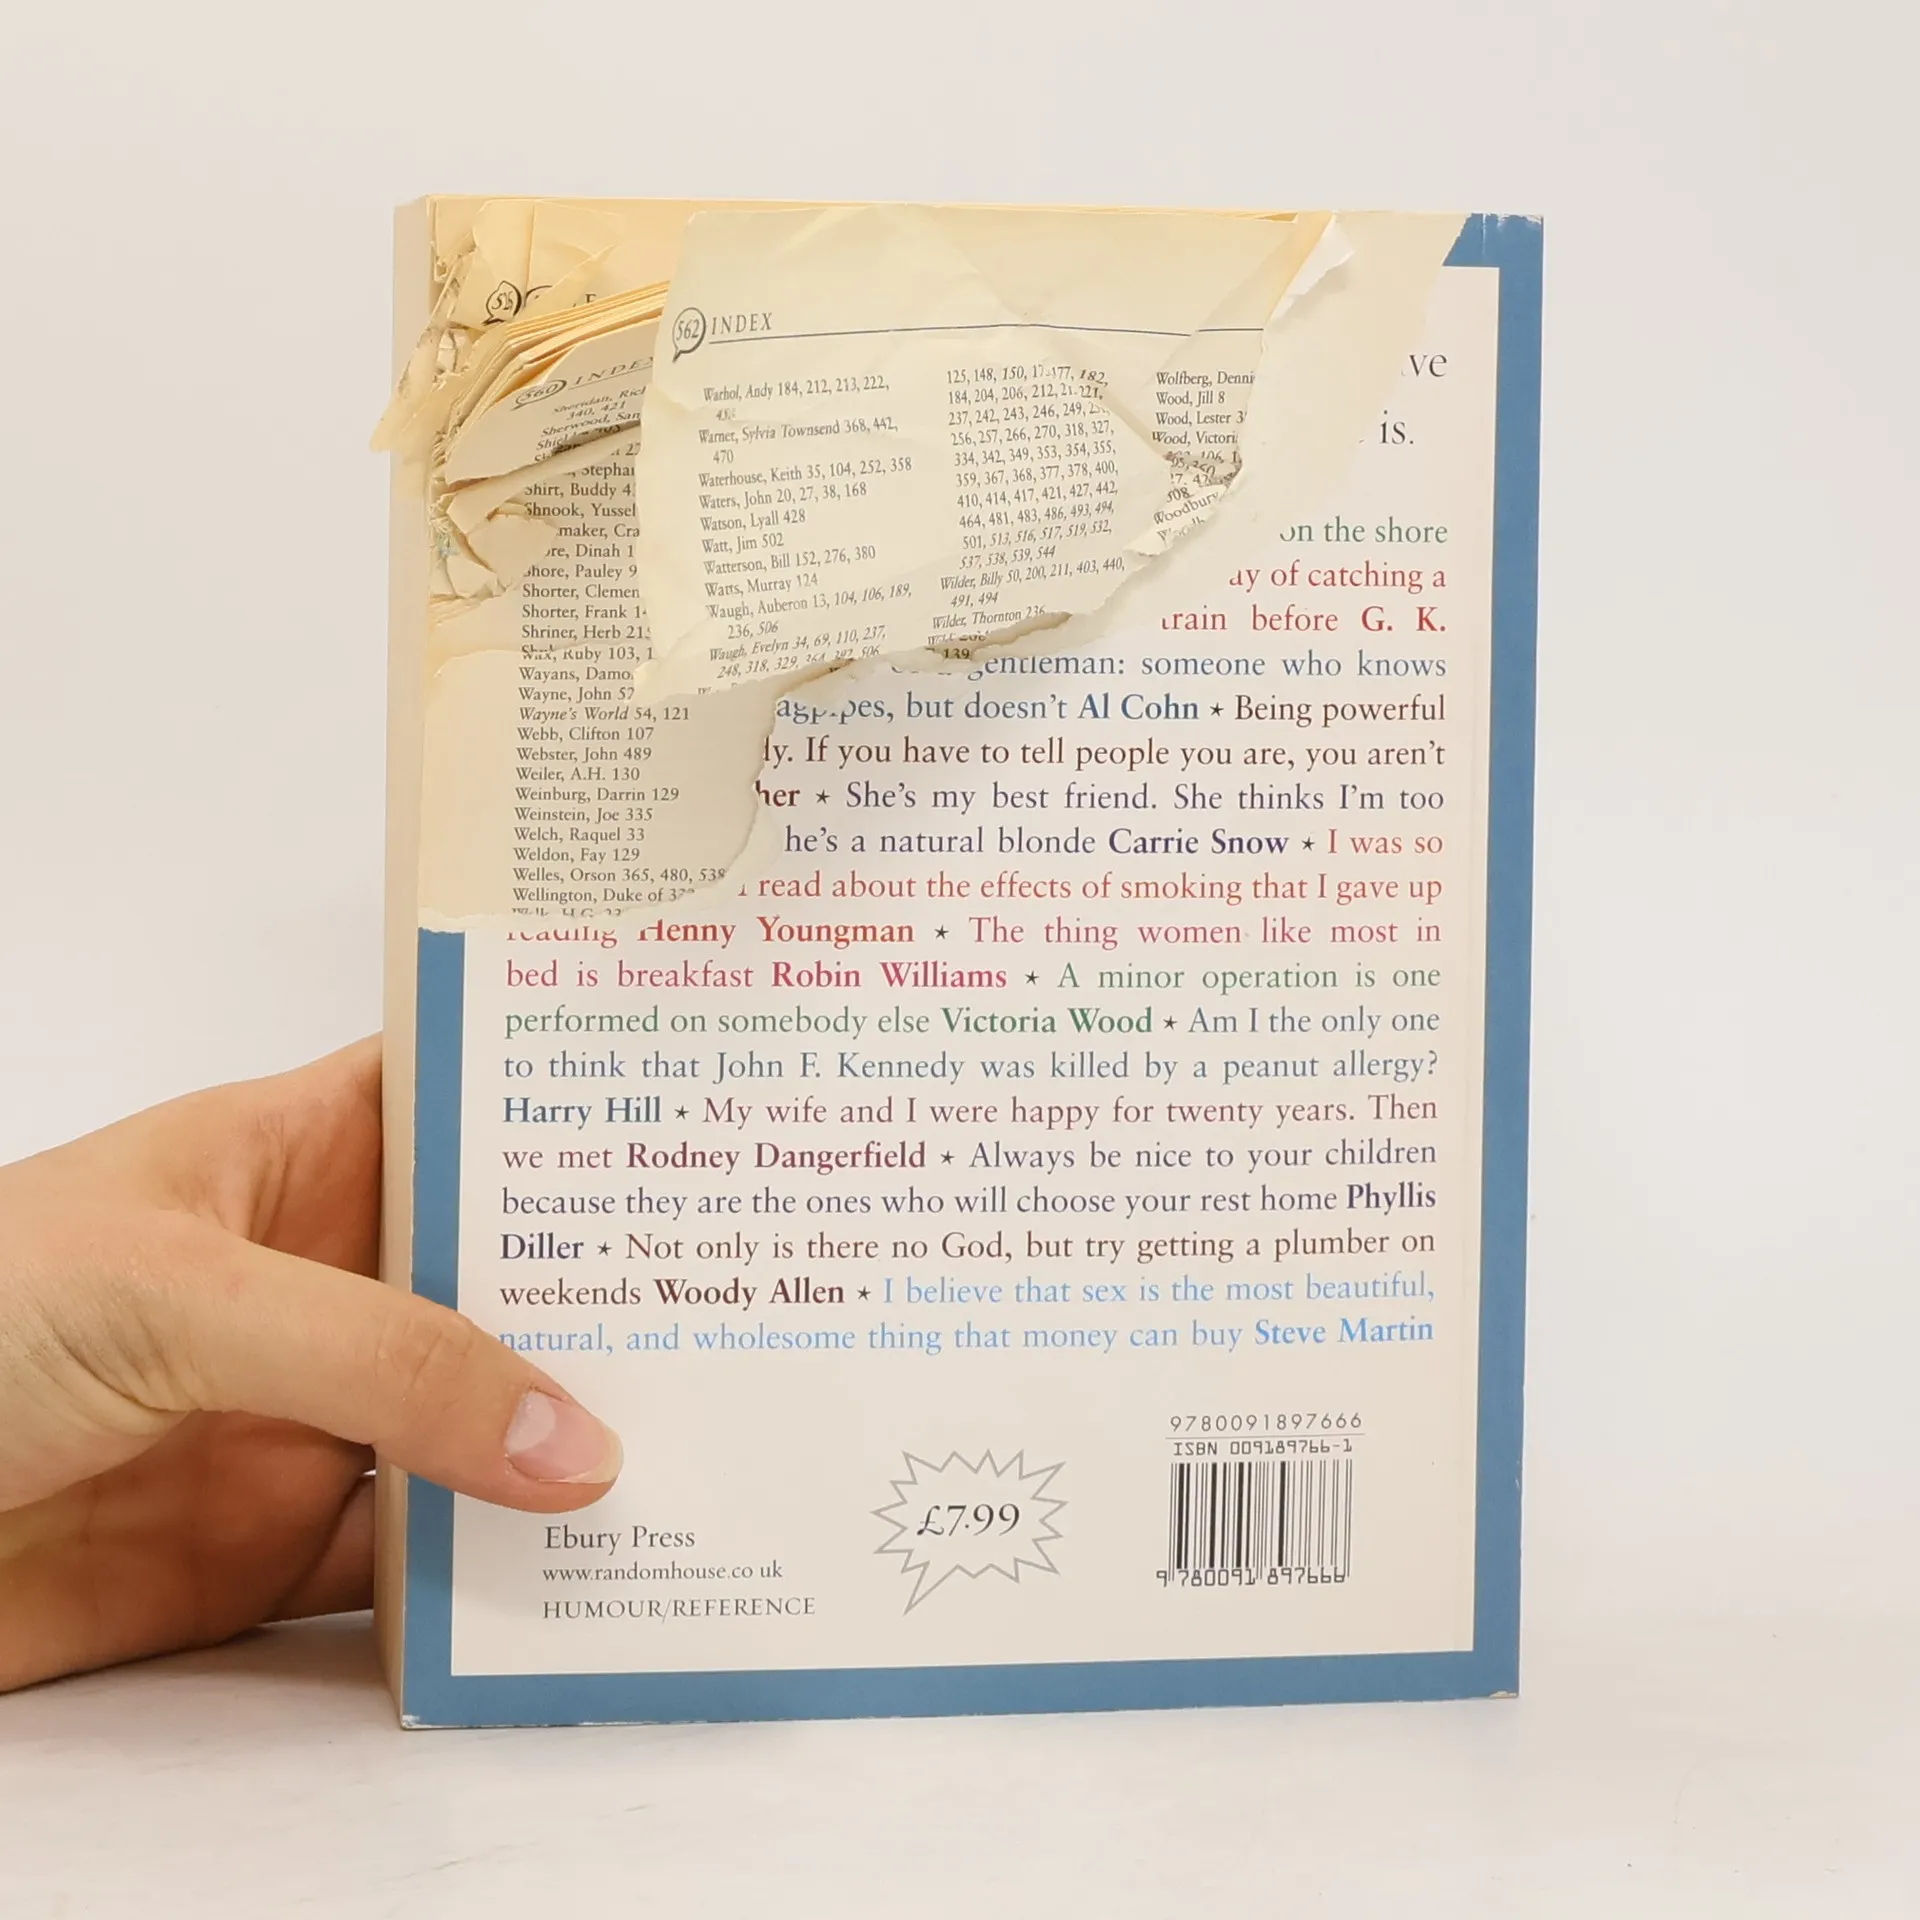 562 INDEX
Warhol, Andy 184, 212, 213, 222,
Warner, Sylvia Townsend 368, 442,
470
Waterhouse, Keith 35, 104, 252, 358
Waters, John 20, 27, 38, 168
Watson, Lyall 428
Watt, Jim 502
Watterson, Bill 152, 276, 380
Watts, Murray 124
Waugh, Auberon 13, 104, 106, 189,
236, 506
Waugh, Evelyn 34, 69, 110, 237,
248, 318, 329,
125, 148, 150, 177, 182,
184, 204, 206, 212, 221,
237, 242, 243, 246, 249,
256, 257, 266, 270, 318, 327,
334, 342, 349, 353, 354, 355,
359, 367, 368, 377, 378, 400,
410, 414, 417, 421, 427, 442,
464, 481, 483, 486, 493, 494,
501, 513, 516, 517, 519, 532,
537, 538, 539, 544
Wilder, Billy 50, 200, 211, 403, 440,
491, 494
Wilder, Thornton 236
139
Wolfberg, Denni
Wood, Jill 8
Wood, Lester 3
Wood, Victori
508
Woodbury
560 INDEX
Sheridan, Ric
340, 421
Sherwood, San
Stephan
Shirt, Buddy 4
Shnook, Yussel
maker, Cra
ore, Dinah 1
Shore, Pauley 9
Shorter, Clemen
Shorter, Frank 1
Shriner, Herb 21
Wax, Ruby 103, 1
Wayans, Damo
Wayne, John 57
Wayne's World 54, 121
Webb, Clifton 107
Webster, John 489
Weiler, A.H. 130
Weinburg, Darrin 129
Weinstein, Joe 335
Welch, Raquel 33
Weldon, Fay 129
Welles, Orson 365, 480, 538
Wellington, Duke of
ve
is.
on the shore
ay of catching a
train before G. K.
gentleman: someone who knows
agpipes, but doesn't Al Cohn ★ Being powerful
ly. If you have to tell people you are, you aren't
her ★ She's my best friend. She thinks I'm too
he's a natural blonde Carrie Snow ★ I was so
I read about the effects of smoking that I gave up
reading Henny Youngman ★ The thing women like most in
bed is breakfast Robin Williams ★ A minor operation is one
performed on somebody else Victoria Wood ★ Am I the only one
to think that John F. Kennedy was killed by a peanut allergy?
Harry Hill ★ My wife and I were happy for twenty years. Then
we met Rodney Dangerfield ★ Always be nice to your children
because they are the ones who will choose your rest home Phyllis
Diller ★ Not only is there no God, but try getting a plumber on
weekends Woody Allen ★ I believe that sex is the most beautiful,
natural, and wholesome thing that money can buy Steve Martin
Ebury Press
www.randomhouse.co uk
HUMOUR/REFERENCE
£7.99
9780091897666
ISBN 009189766-1
9 780091 897666